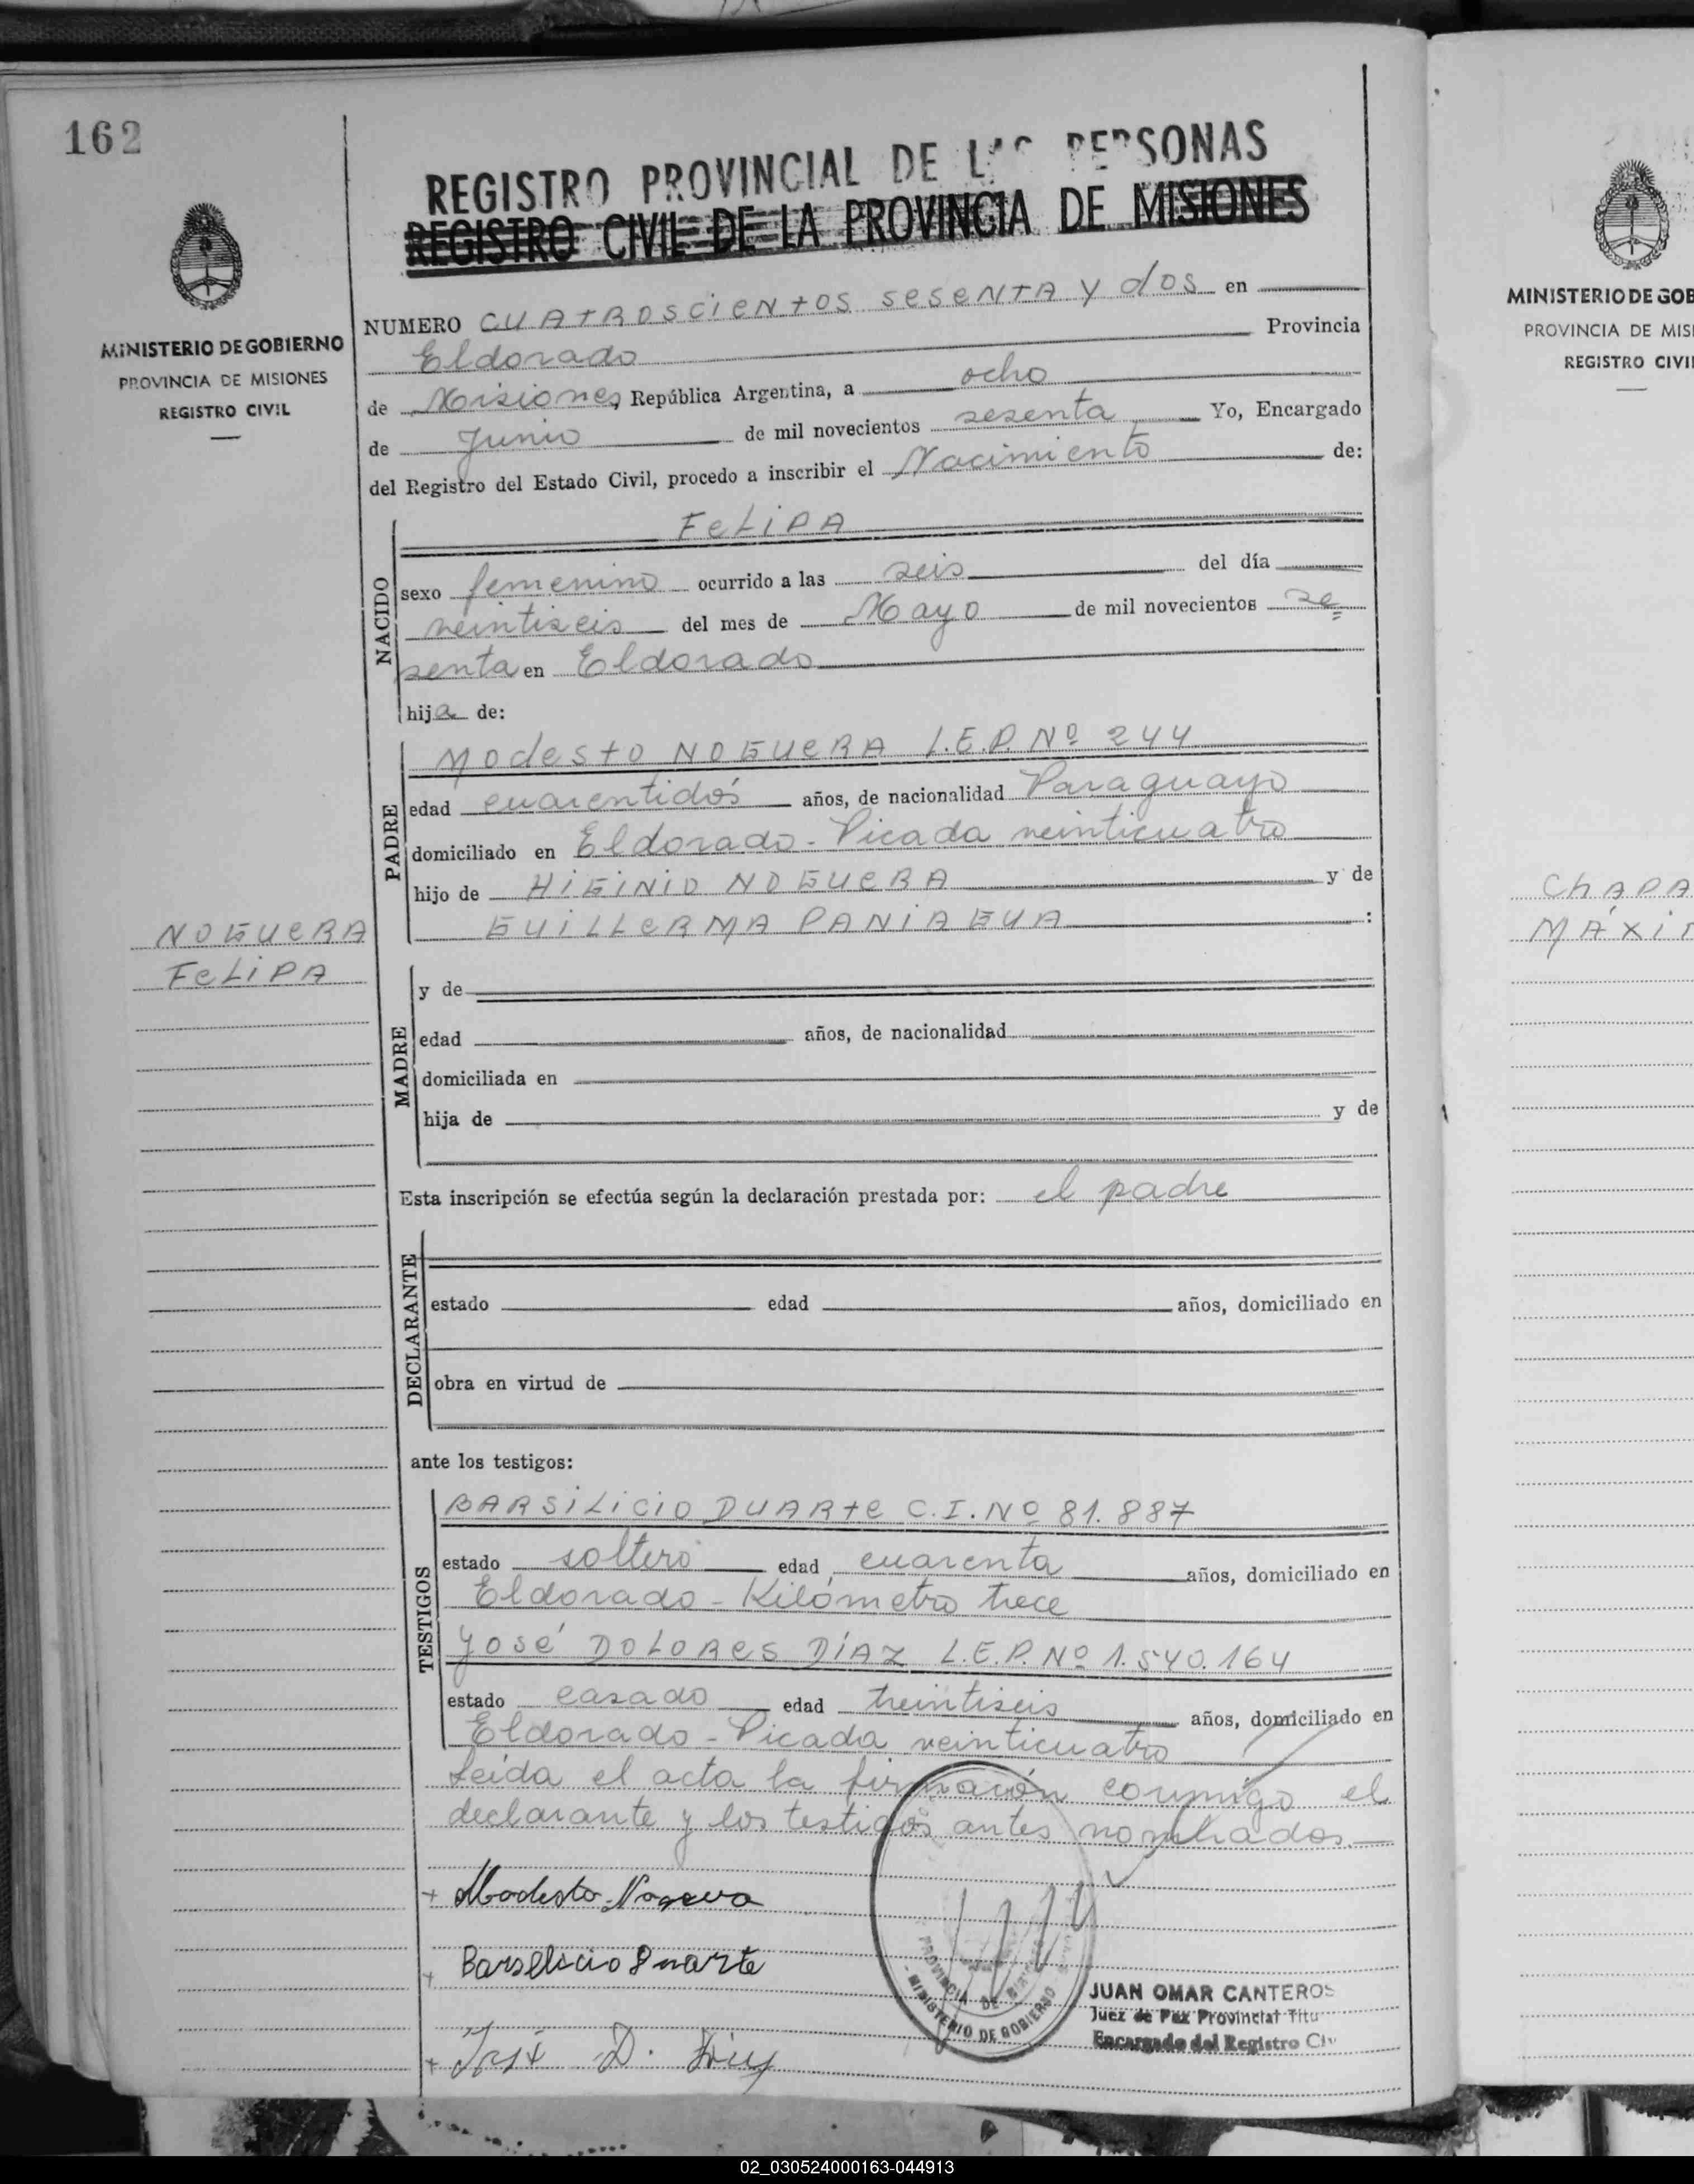 162
REGISTRO PROVINCIAL DE LAS PERSONAS
REGISTRO CIVIL DE LA PROVINCIA DE MISIONES
MINISTERIO DE GOBIERNO
PROVINCIA DE MISIONES
REGISTRO CIVIL
NUMERO CUATROSCIENTOS SESENTA Y dOS en
Eldorado Provincia
de Misiones, República Argentina, a ocho
de Junio de mil novecientos sesenta Yo, Encargado
del Registro del Estado Civil, procedo a inscribir el Nacimiento de:
NACIDO
FELIPA
sexo femenino ocurrido a las seis del día
veintiseis del mes de Mayo de mil novecientos se=
senta en Eldorado
hija de:
PADRE
MODESTO NOGUERA L.E.P. Nº 244
edad cuarentidós años, de nacionalidad Paraguayo
domiciliado en Eldorado - Picada veinticuatro
hijo de HIGINIO NOGUERA y de
GUILLERMA PANIAGUA :
NOGUERA
FELIPA
MADRE
y de
edad años, de nacionalidad
domiciliada en
hija de y de
Esta inscripción se efectúa según la declaración prestada por: el padre
DECLARANTE
estado edad años, domiciliado en
obra en virtud de
ante los testigos:
TESTIGOS
BARSILICIO DUARTE C.I. Nº 81.887
estado soltero edad cuarenta años, domiciliado en
Eldorado - Kilómetro trece
JOSÉ DOLORES DÍAZ L.E.P. Nº 1.540.164
estado casado edad treintiseis años, domiciliado en
Eldorado - Picada veinticuatro
Leida el acta la firmarón conmigo el
declarante y los testigos antes nombrados.
+ Modesto Noguera
+ Barselicio Duarte
+ José D. Diaz
PROVINCIA DE MISIONES
- MINISTERIO DE GOBIERNO
JUAN OMAR CANTEROS
Juez de Paz Provincial Titu
Encargado del Registro Civ
MINISTERIO DE GOB
PROVINCIA DE MIS
REGISTRO CIVI
CHAPA
MÁXI
02_030524000163-044913